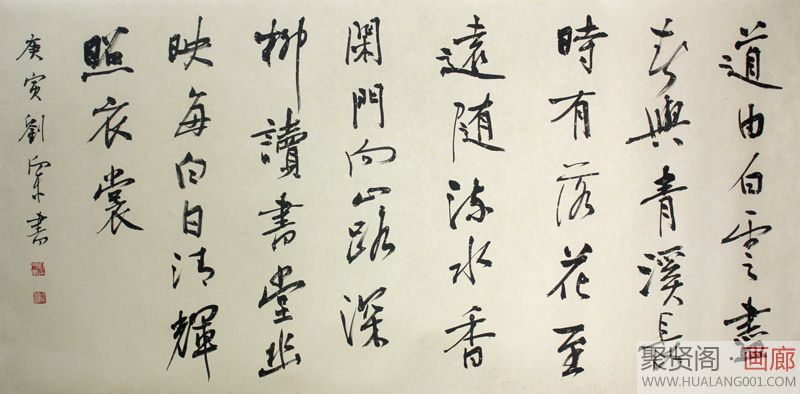 道由白雲盡
春與青溪長
時有落花至
遠随流水香
閑門向山路深
柳讀書堂幽
映每白日清輝
照衣裳
庚寅劉書
聚贤阁·画廊
WWW.HUALANG001.COM